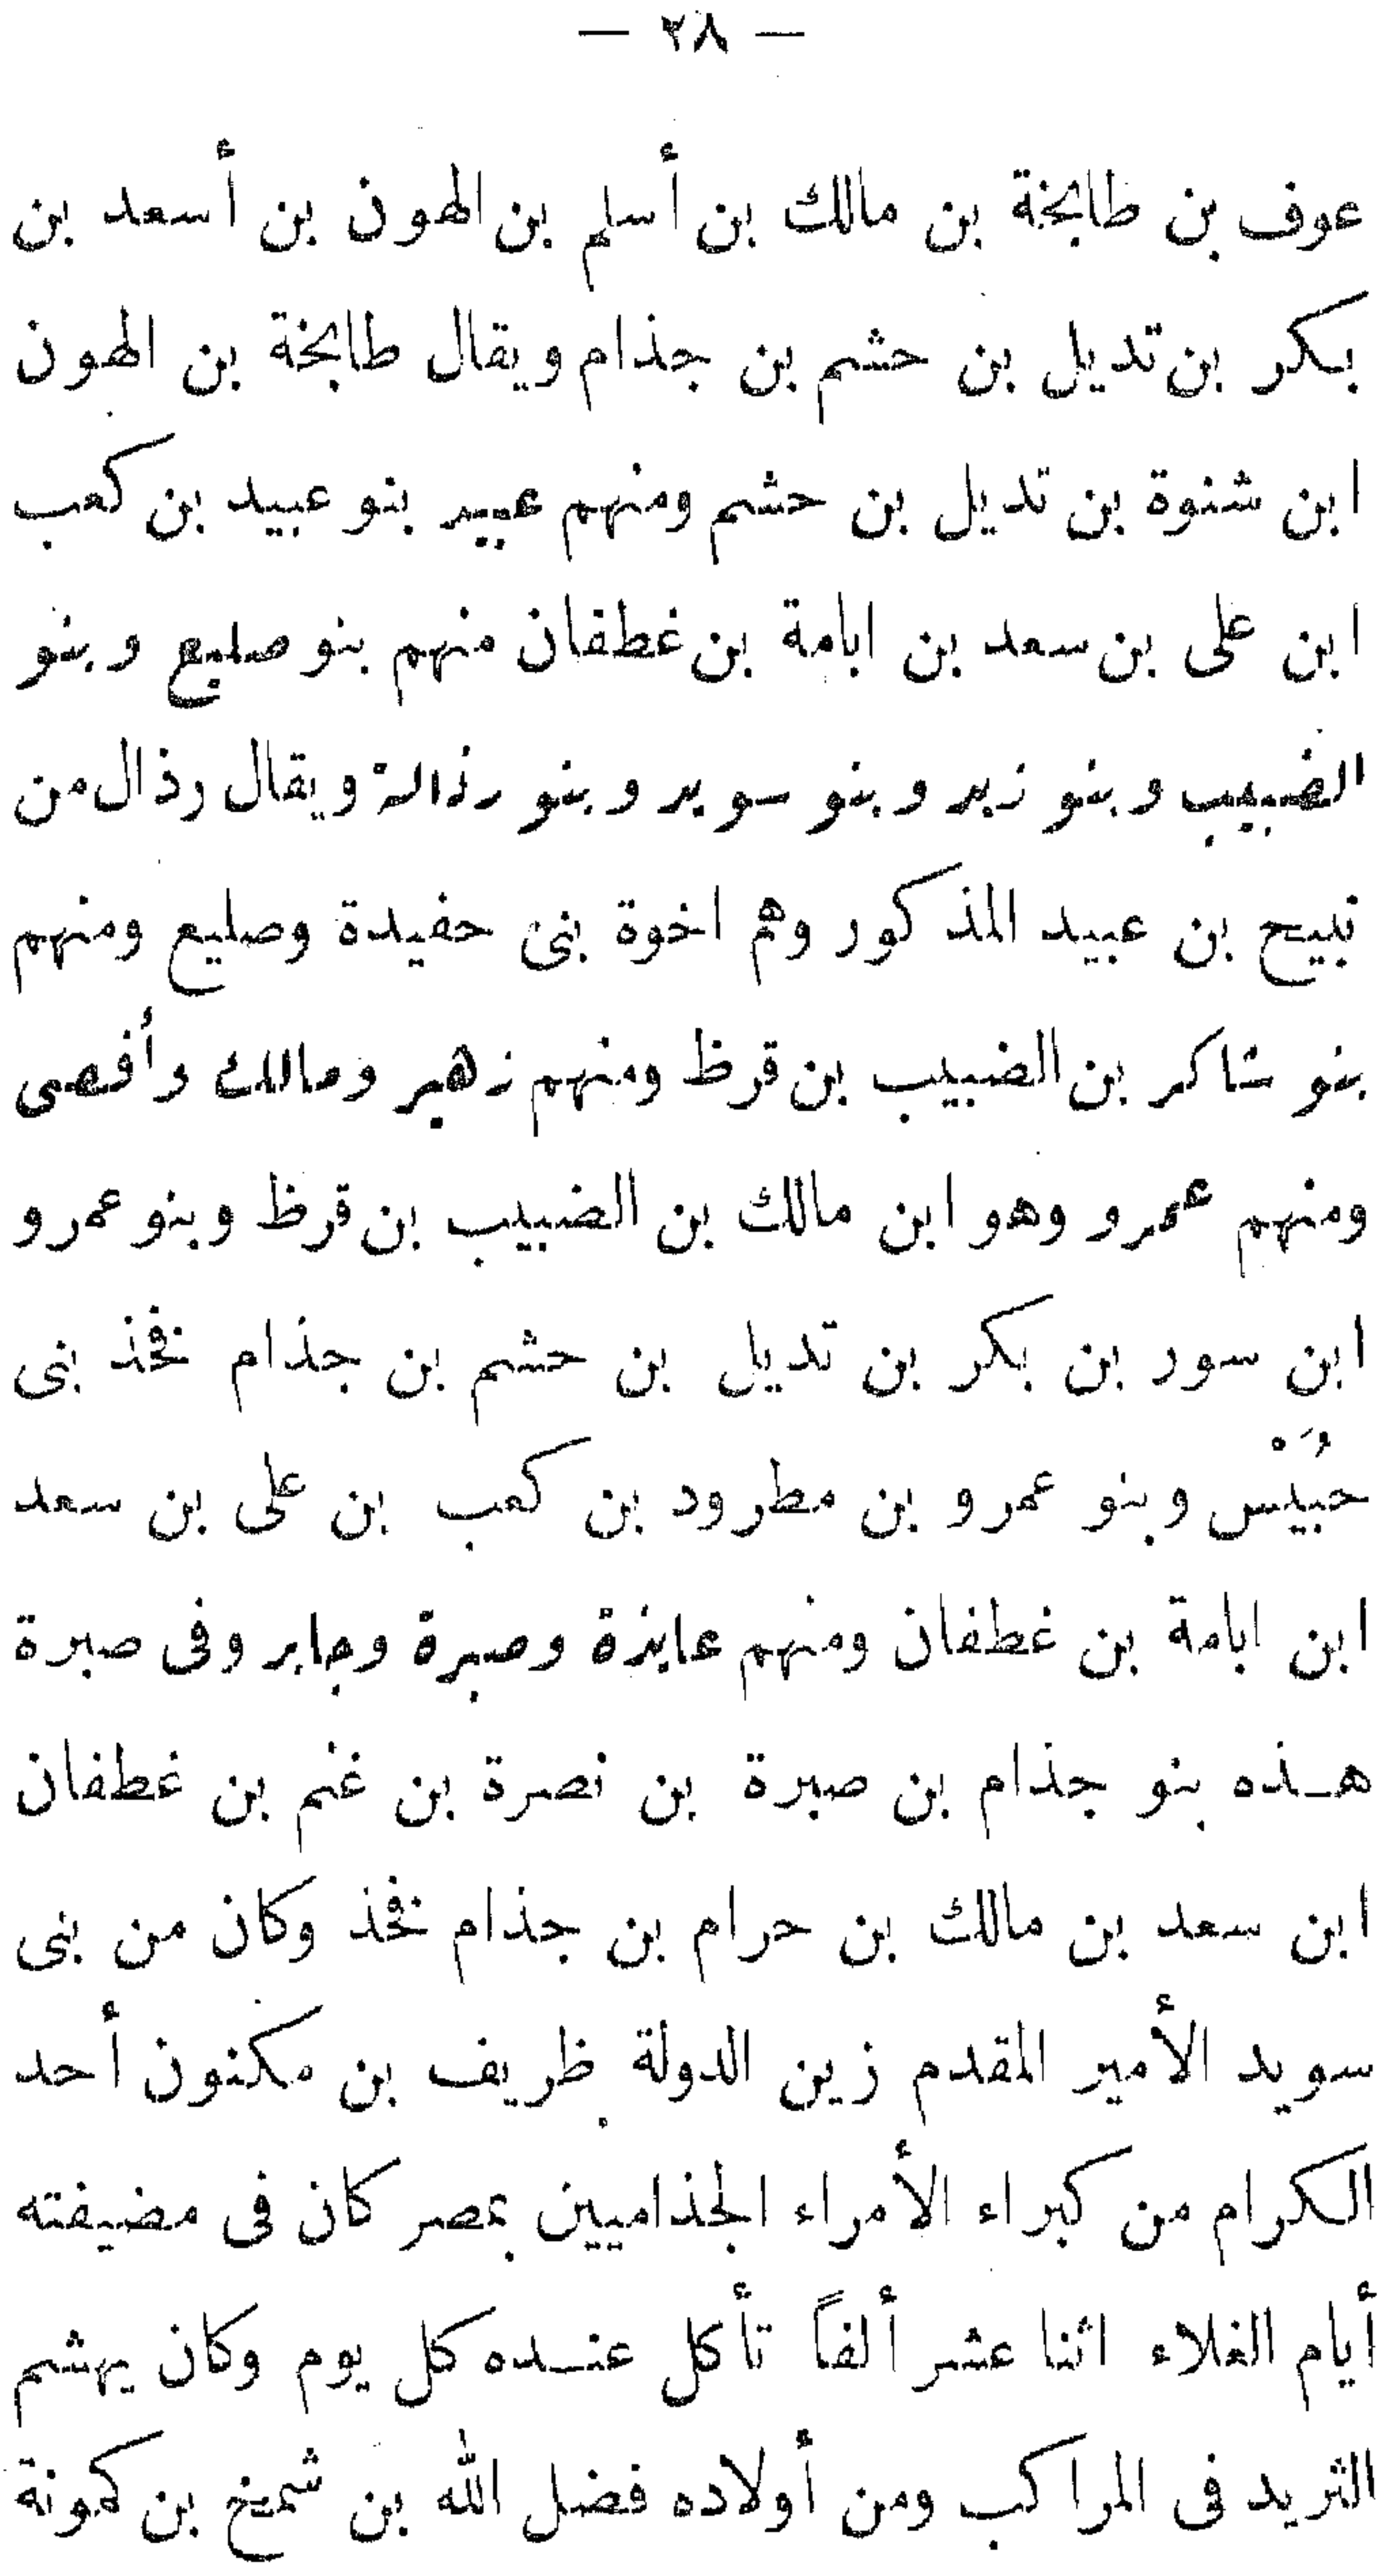 — ٢٨ —
عوف بن طابخة بن مالك بن أسلم بن الهون بن أسعد بن
بكر بن تديل بن حشم بن جذام ويقال طابخة بن الهون
ابن شنوة بن تديل بن حشم ومنهم عبيد بنو عبيد بن كعب
ابن على بن سعد بن ابامة بن غطفان منهم بنو صليع وبنو
الضبيب وبنو زيد وبنو سويد وبنو رذالة ويقال رذال من
نبيح بن عبيد المذكور وهم اخوة بنى حفيدة وصليع ومنهم
بنو شاكر بن الضبيب بن قرظ ومنهم زهير ومالك وأفصى
ومنهم عمرو وهو ابن مالك بن الضبيب بن قرظ وبنو عمرو
ابن سور بن بكر بن تديل بن حشم بن جذام فخذ بنى
حُبَيْس وبنو عمرو بن مطرود بن كعب بن على بن سعد
ابن ابامة بن غطفان ومنهم عايذة وصبرة وجابر وفى صبرة
هـذه بنو جذام بن صبرة بن نصرة بن غنم بن غطفان
ابن سعد بن مالك بن حرام بن جذام فخذ وكان من بنى
سويد الأمير المقدم زين الدولة ظريف بن مكنون أحد
الكرام من كبراء الأمراء الجذاميين بمصر كان فى مضيفته
أيام الغلاء اثنا عشر ألفاً تأكل عنـده كل يوم وكان يهشم
الثريد فى المراكب ومن أولاده فضل الله بن شمخ بن كمونة